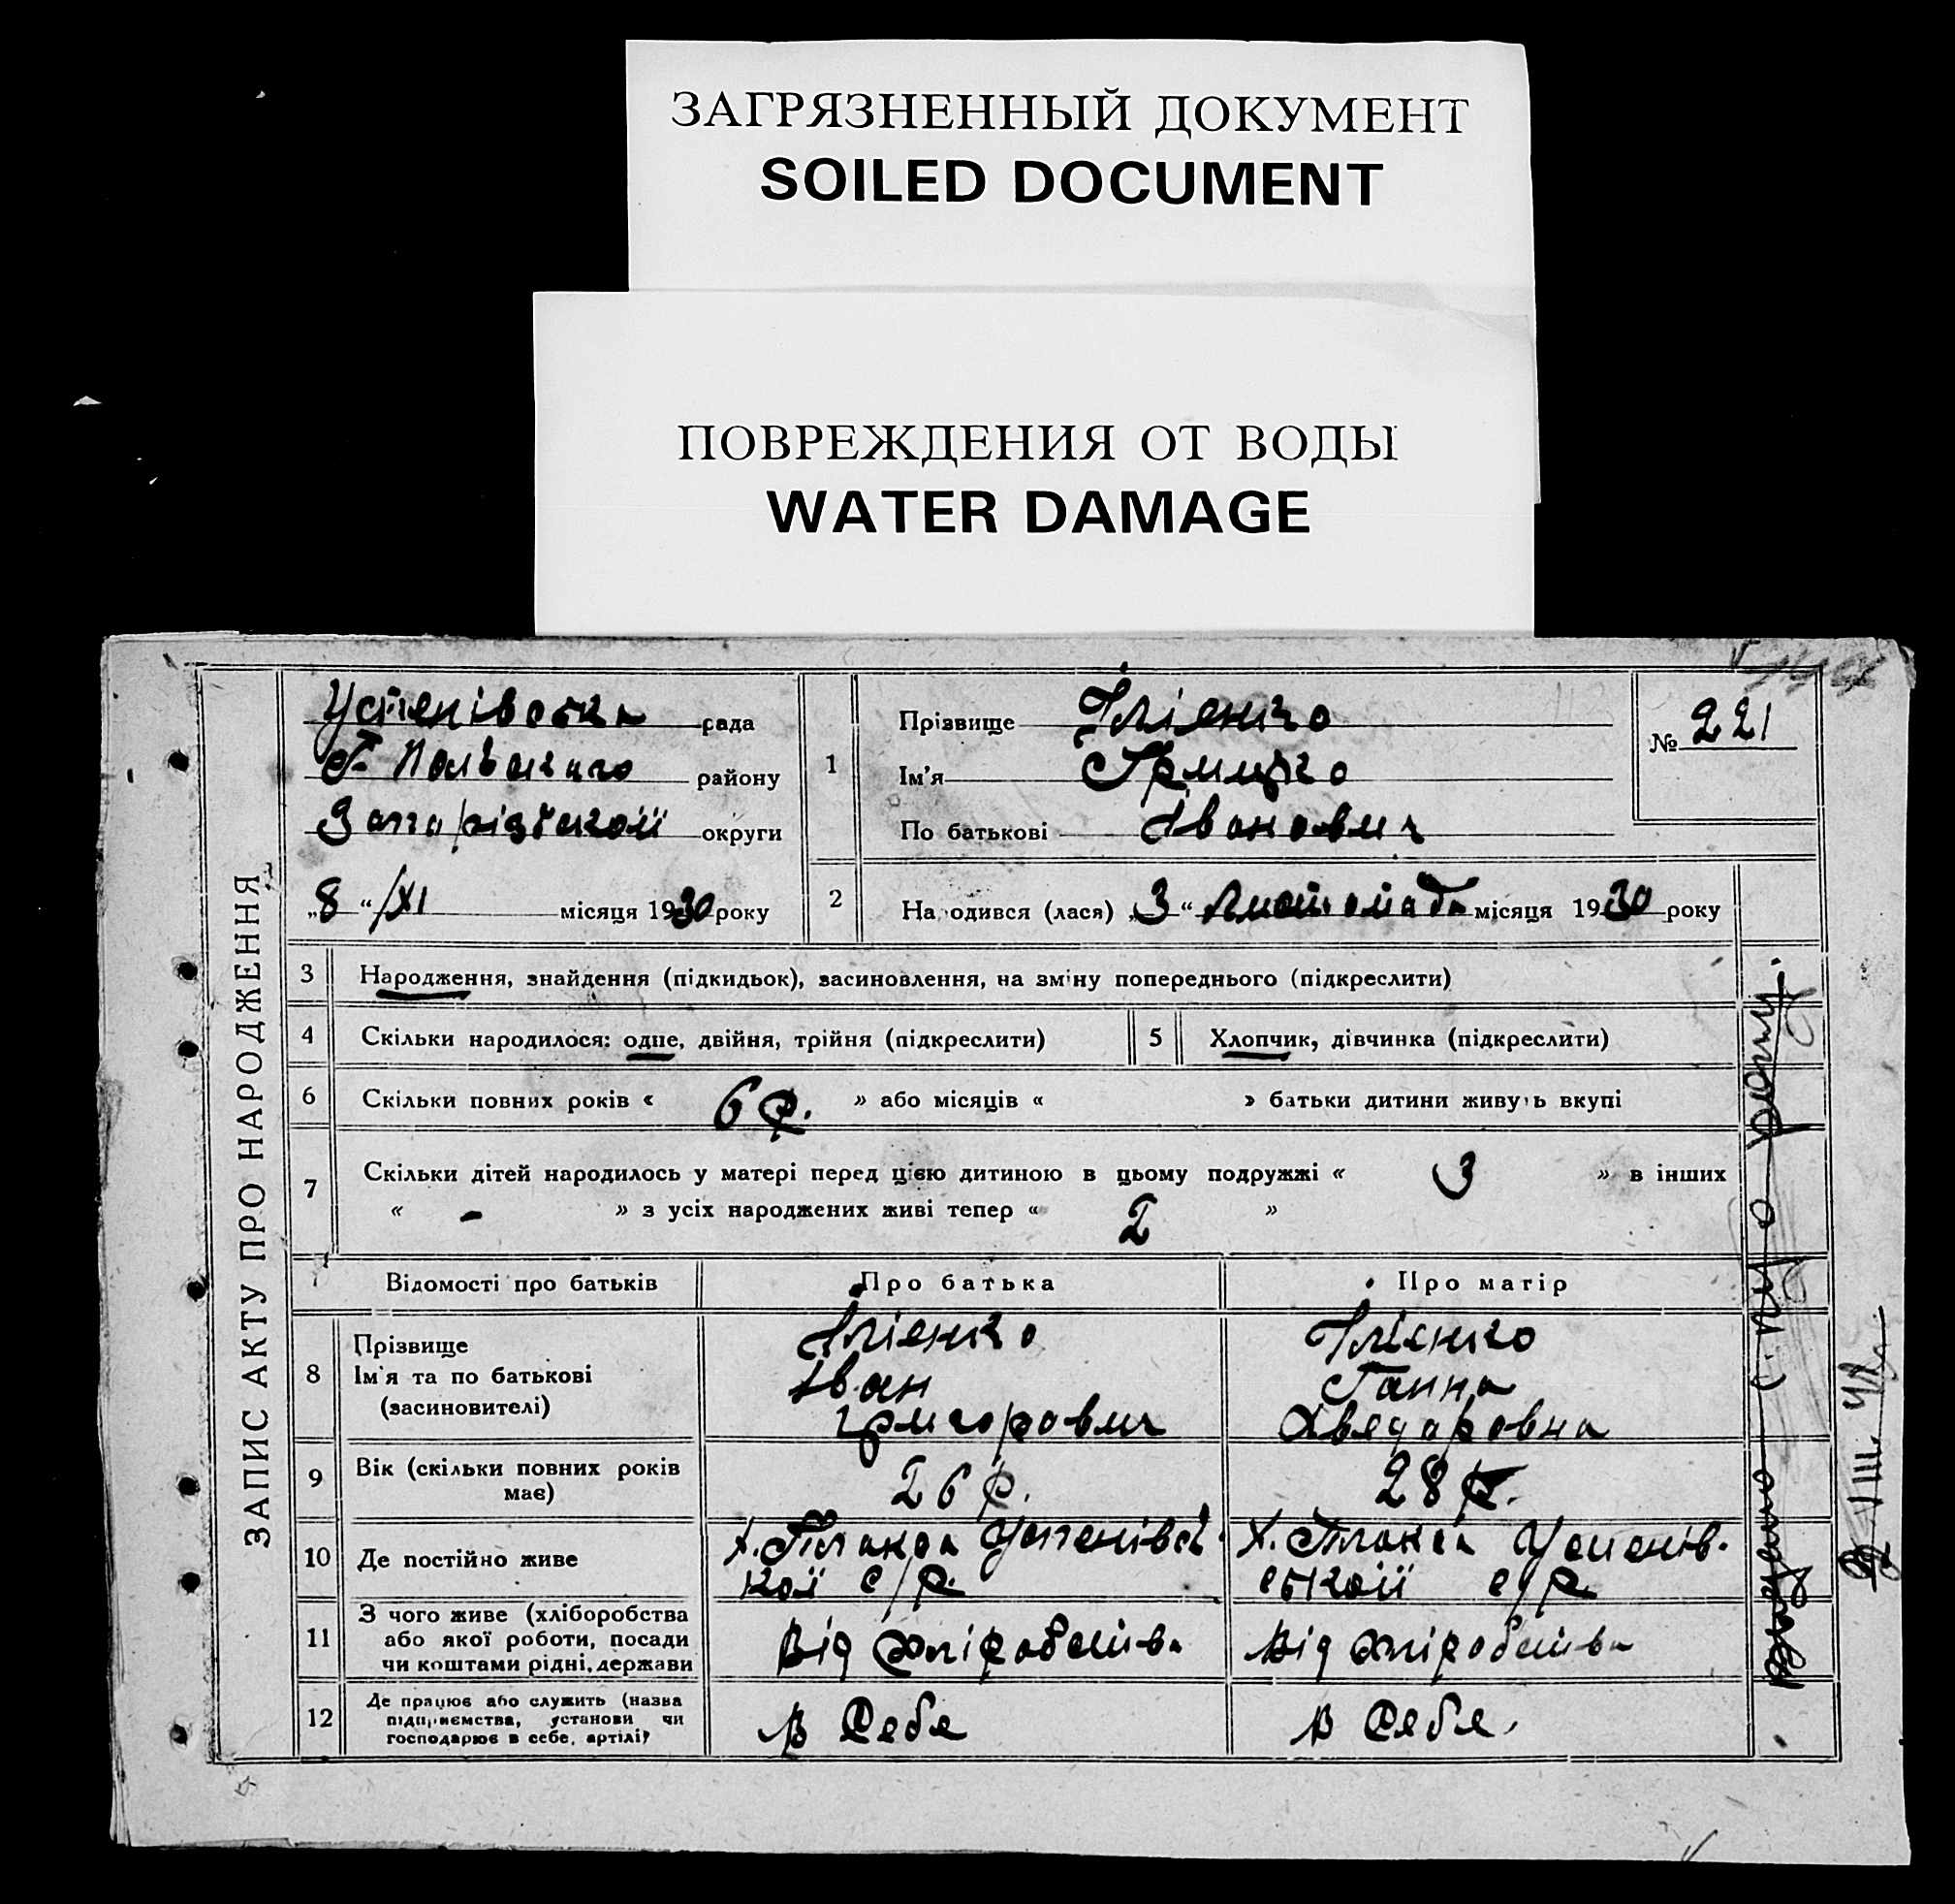 ЗАГРЯЗНЕННЫЙ ДОКУМЕНТ
SOILED DOCUMENT
ПОВРЕЖДЕНИЯ ОТ ВОДЫ
WATER DAMAGE
ЗАПИС АКТУ ПРО НАРОДЖЕННЯ
Успенівська рада
району
Запорізської округи
„8“/XI місяця 1930 року
1
Прізвище Ілієнко
Ім'я Грицько
По батькові Іванович
№ 221
2
Народився (лася) „3“ листопада місяця 1930 року
3 Народження, знайдення (підкидьок), засиновлення, на зміну попереднього (підкреслити)
4 Скільки народилося: одне, двійня, трійня (підкреслити) 5 Хлопчик, дівчинка (підкреслити)
6 Скільки повних років « 6 р. » або місяців « » батьки дитини живуть вкупі
7 Скільки дітей народилось у матері перед цією дитиною в цьому подружжі « 3 » в інших
« - » з усіх народжених живі тепер « 2 »
Відомості про батьків Про батька Про матір
8 Прізвище
Ім'я та по батькові
(засиновителі)
Ілієнко
Іван
Григорович
Ілієнко
Ганна
Хведоровна
9 Вік (скільки повних років
має)
26 р.
28 р.
10 Де постійно живе
х. Успенівсь
кої с/р.
Х. Успенів-
ської с/р
11 З чого живе (хліборобства
або якої роботи, посади
чи коштами рідні, держави
Від хліробства
Від хліробства
12 Де працює або служить (назва
підприємства, установи чи
господарює в себе, артілі)
В себе
В себе